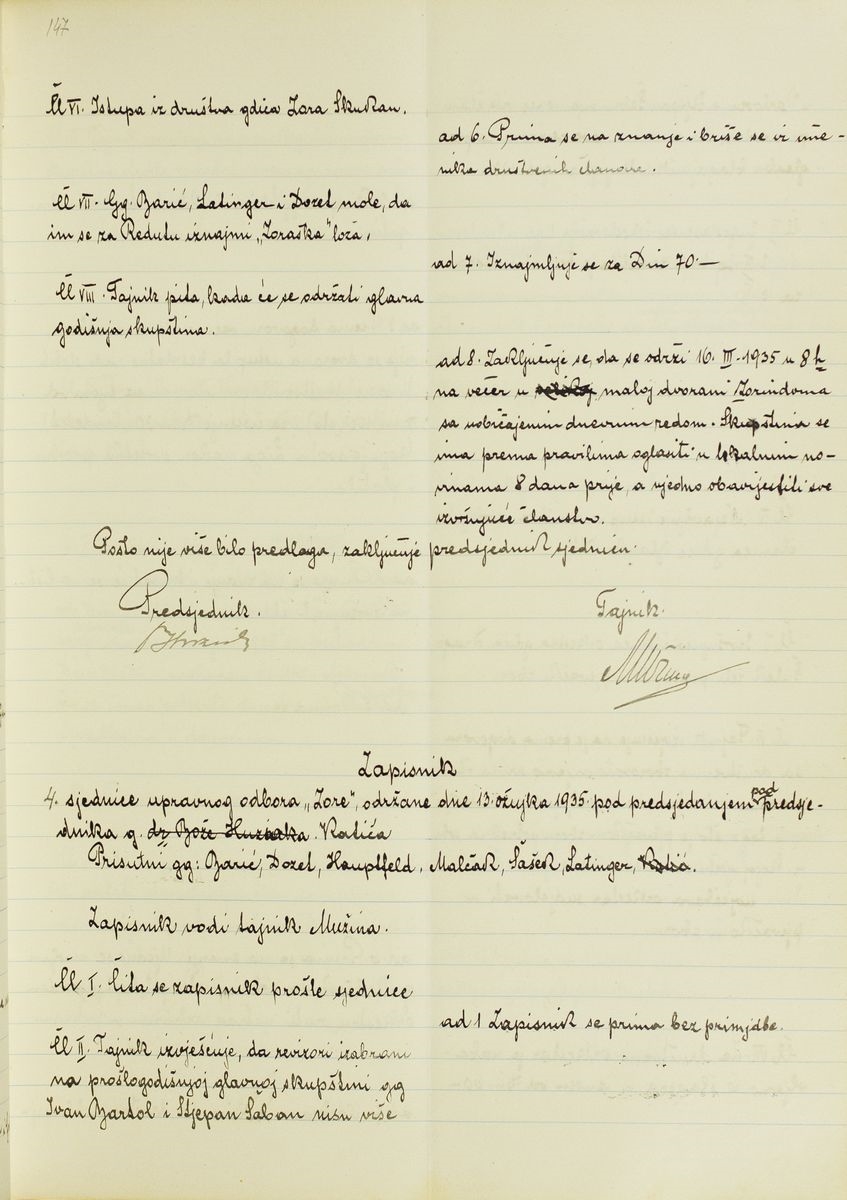 147
Čl VI. Istupa iz društva gdica Zora Skukan.
ad 6. Prima se na znanje i briše se iz ime-
nika društvenih članova.
Čl VII. Gg. Barić, Latinger i Dozet mole, da
im se za Redutu iznajmi „Zoraška" loža,
ad 7. Iznajmljuje se za Din 70.—
Čl VIII. Tajnik pita, kada će se održati glavna
godišnja skupština.
ad 8. Zaključuje se, da se održi 16. III. 1935 u 8 h
na večer u velikoj maloj dvorani Zorindoma
sa uobičajenim dnevnim redom. Skupština se
ima prema pravilima oglasiti u lokalnim no-
vinama 8 dana prije, a ujedno obavijestiti sve
izvršujuće članstvo.
Pošto nije više bilo predlaga, zaključuje predsjednik sjednicu.
Predsjednik.
Tajnik.
Mužina
Zapisnik
4. sjednice upravnog odbora „Zore", održane dne 13. ožujka 1935. pod predsjedanjem podpredsje-
dnika g. dr Bože Katića
Prisutni gg: Barić, Dozet, Hauptfeld, Malčak, Šašek, Latinger, Katić.
Zapisnik vodi tajnik Mužina.
Čl I. Čita se zapisnik prošle sjednice
ad 1 Zapisnik se prima bez primjdbe.
Čl II. Tajnik izvješćuje, da revizori izabrani
na prošlogodišnjoj glavnoj skupštini gg
Ivan Bartol i Stjepan Šaban nisu više